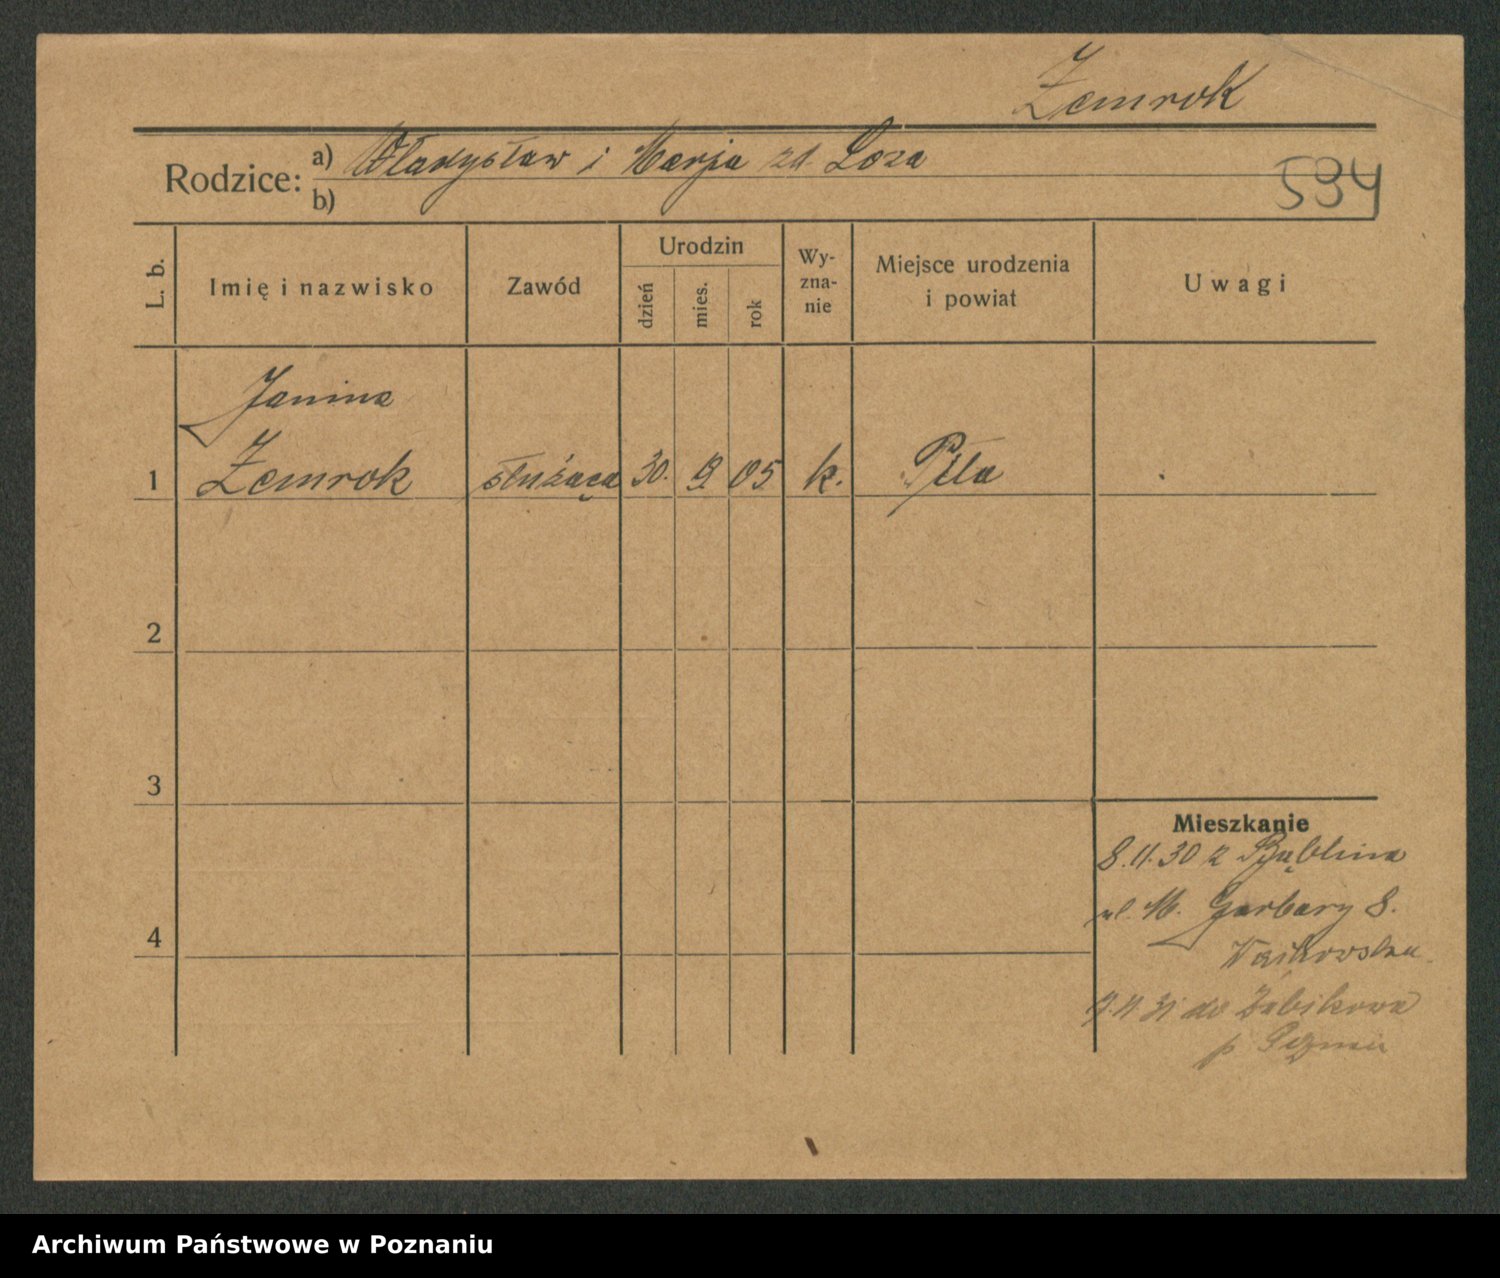 Żemrok
Rodzice: a) Władysław i Marja zd. Loza
b)
594
L. b.
Imię i nazwisko
Zawód
Urodzin
dzień
mies.
rok
Wy-
zna-
nie
Miejsce urodzenia
i powiat
Uwagi
Janina
1 Żemrok służąca 30. 9 05 k. Piła
2
3
4
Mieszkanie
8.11.30 z Bąblina
ul. M. Garbary 8.
31 do Żabikowa
p
Archiwum Państwowe w Poznaniu